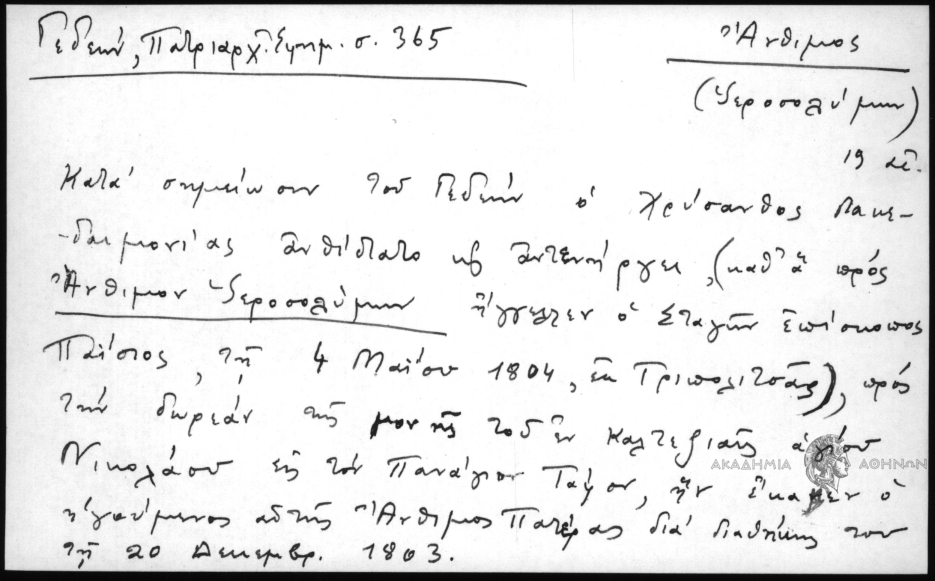 Γεδεών, Πατριαρχ. Ἐφημ. σ. 365
Ἄνθιμος
(Ἱεροσολύμων)
19 αἰ.
Κατά σημείωσιν τοῦ Γεδεών ὁ Χρύσανθος Λακε-
-δαιμονίας ἀνθίστατο κ ἀντενήργει, (καθ' ἅ πρός
Ἄνθιμον Ἱεροσολύμων ἤγγελλεν ὁ Σταγῶν ἐπίσκοπος
Παΐσιος, τῇ 4 Μαΐου 1804, ἐκ Τριπολιτσᾶς), πρός
τήν δωρεάν τῆς μονῆς τοῦ ἐν Καλτεζιαῖς ἁγίου
Νικολάου εἰς τόν Πανάγιον Τάφον, ἥν ἔκαμεν ὁ
ἡγούμενος αὐτῆς Ἄνθιμος Πατέρας διά διαθήκης του
τῇ 20 Δεκεμβρ. 1803.
ΑΚΑΔΗΜΙΑ ΑΘΗΝΩΝ